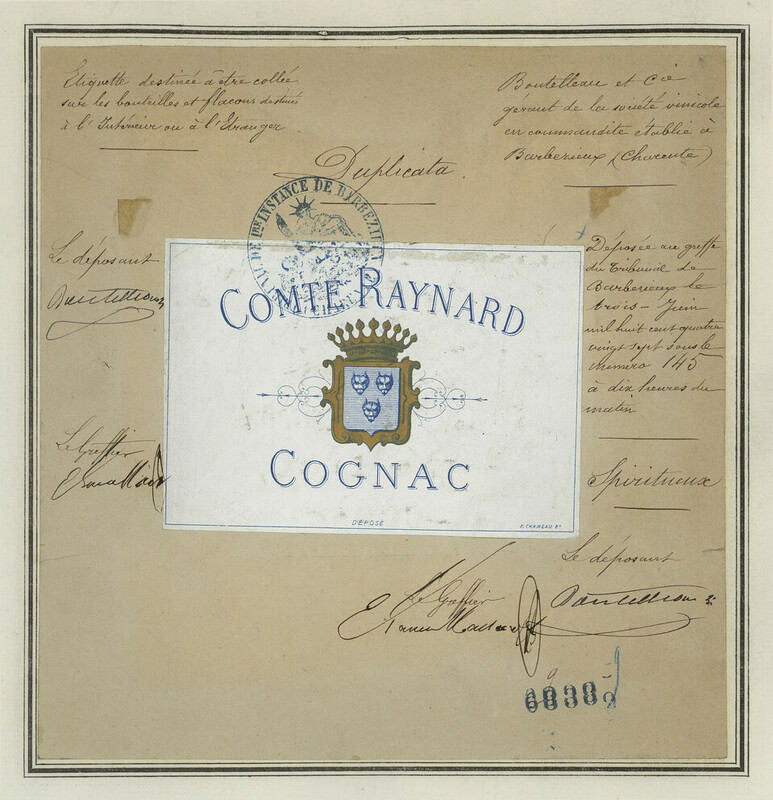 Etiquette destinée à être collée
sur les bouteilles et flacons destinés
à l'Intérieur ou à l'Etranger
Boutelleau et Cie
gérant de la société vinicole
en commandite établie à
Barbezieux (Charente)
Duplicata.
INSTANCE DE BARBEZI
Le déposant
Boutelleau
Déposée au greffe
du Tribunal de
Barbezieux le
trois - Juin
mil huit cent quatre
vingt sept sous le
numéro 145
à dix heures du
matin
COMTE RAYNARD
COGNAC
DÉPOSÉ
Le Greffier
Spiritueux
Le déposant
Boutelleau
Le Greffier